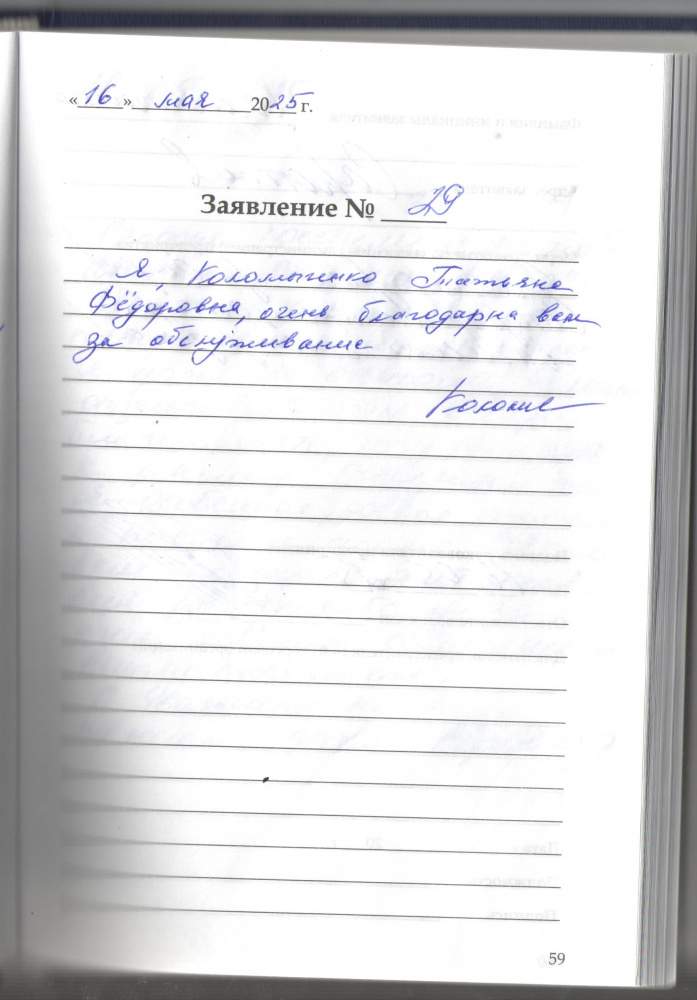 «16» мая 2025 г.
Заявление № 29
Я, Коломыченко Татьяна
Фёдоровна, очень благодарна вам
за обслуживание
59